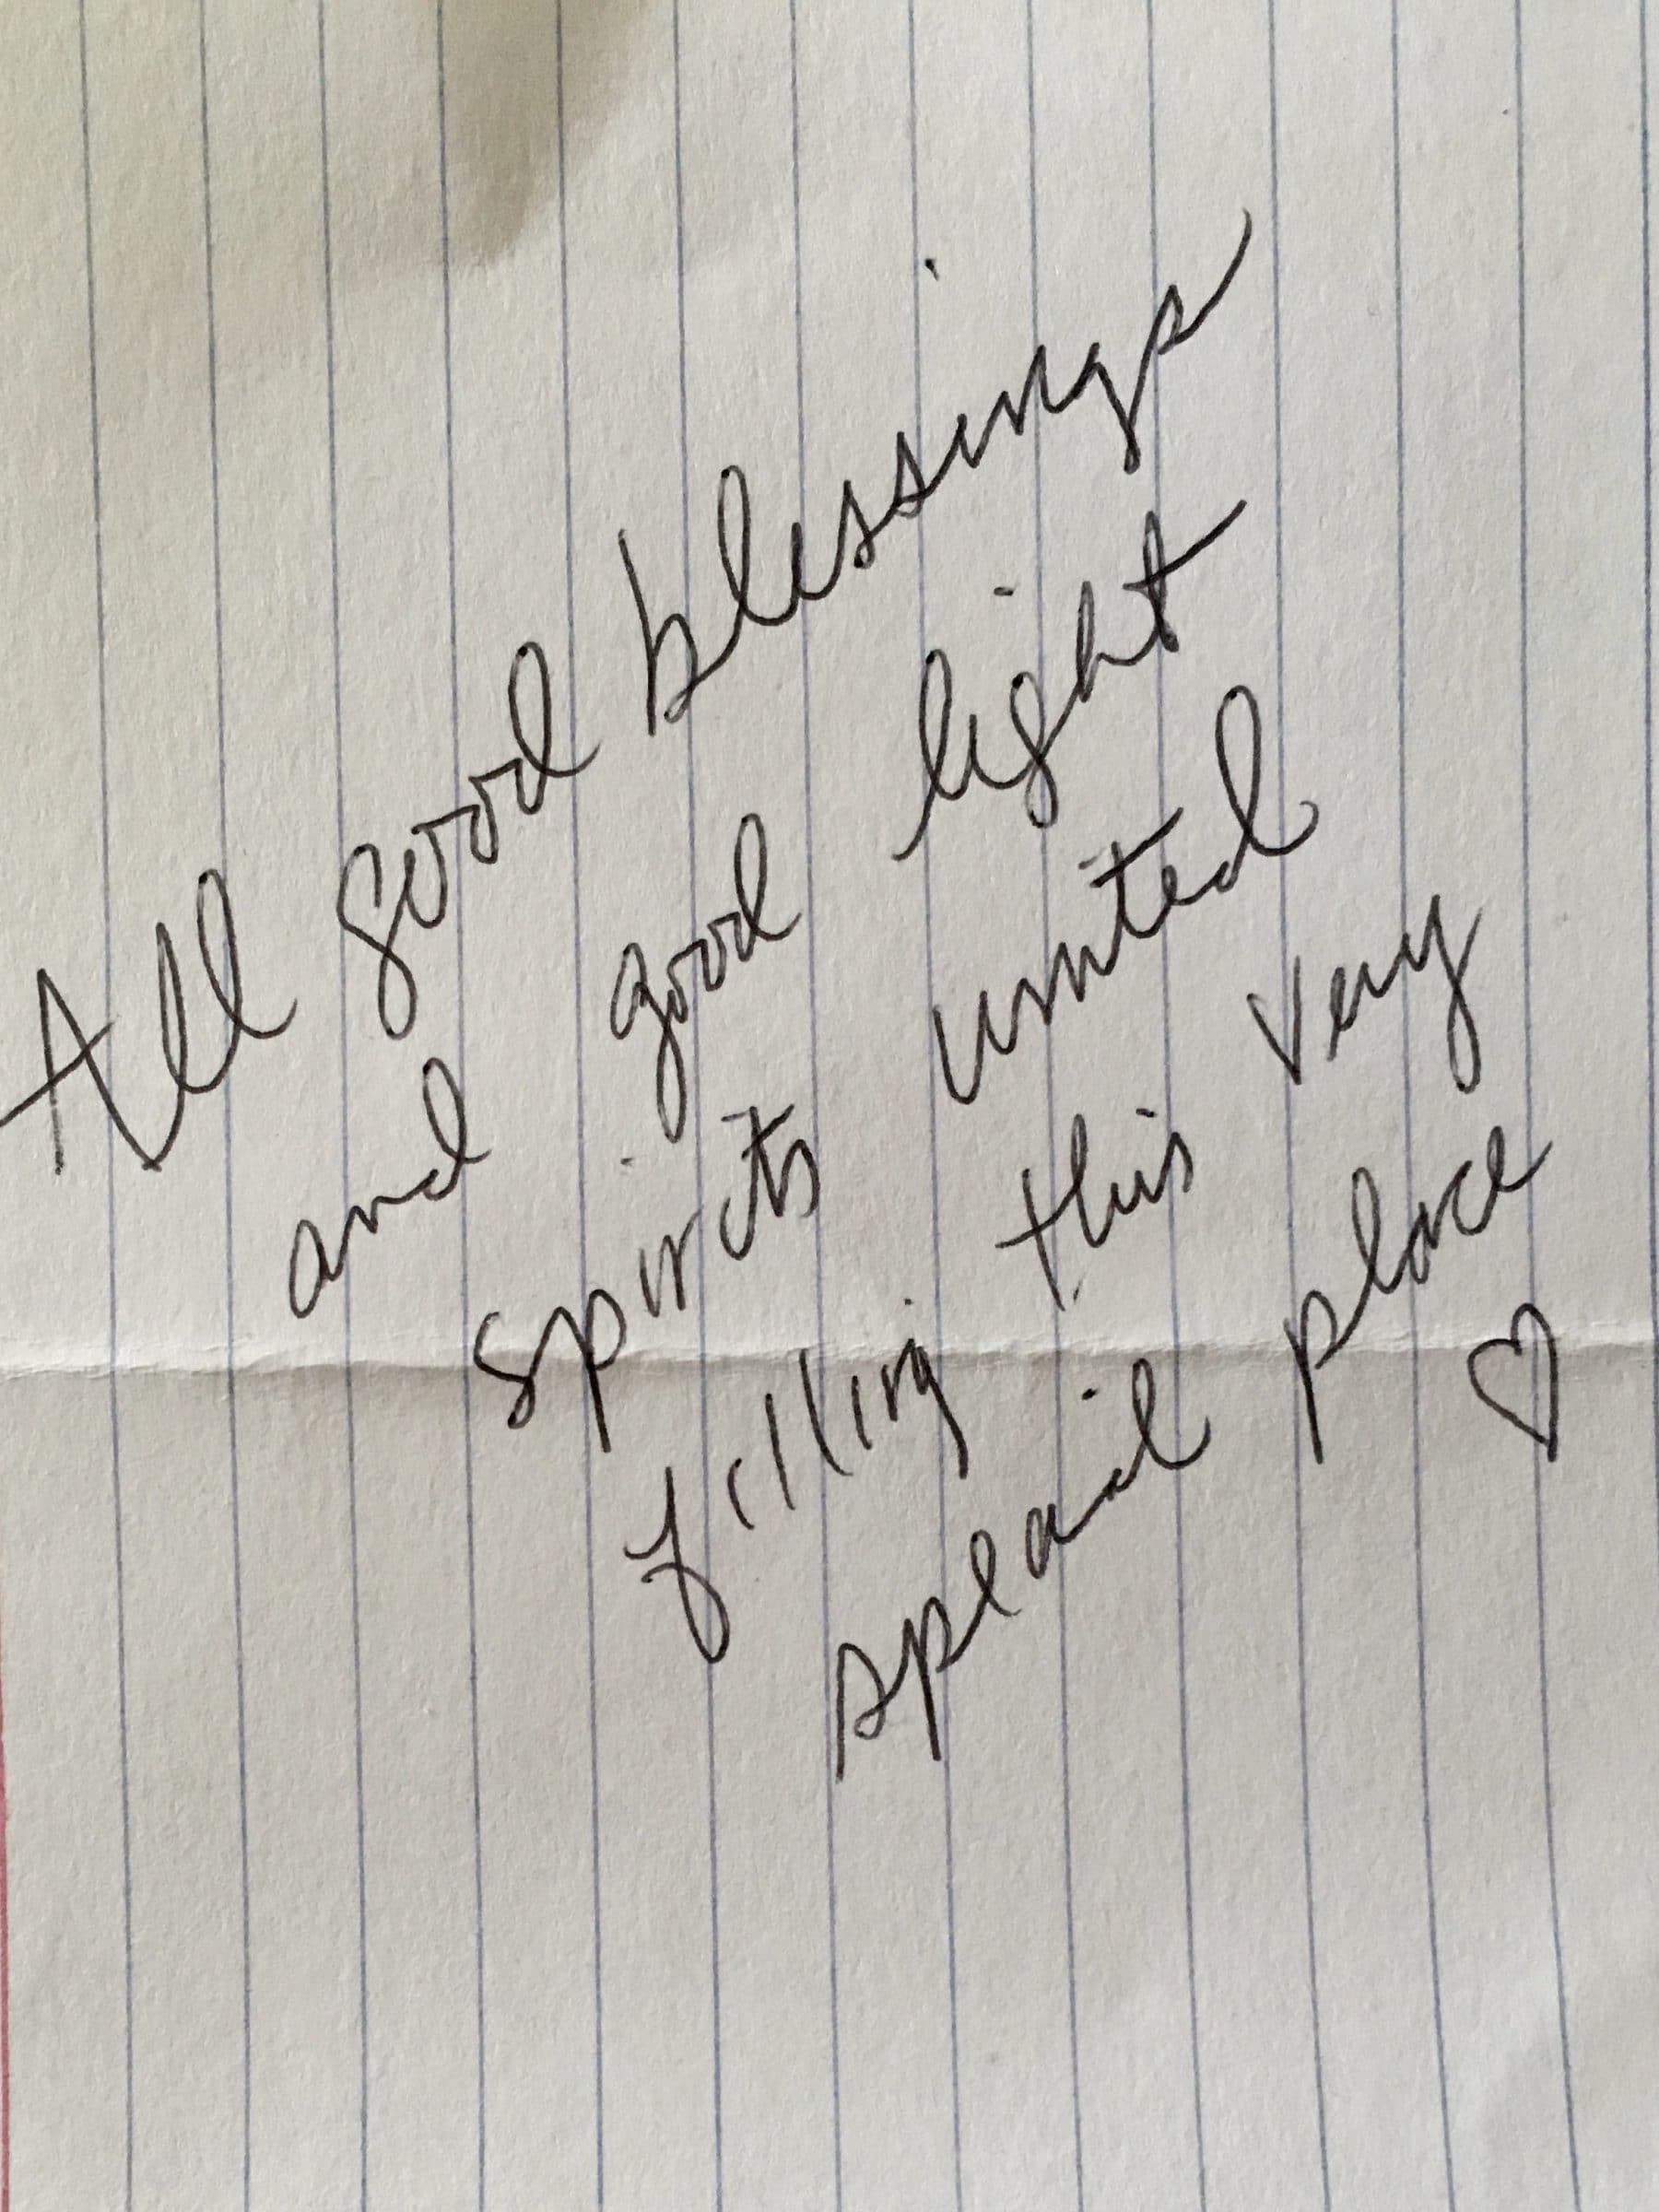 All good blessings
and good light
spirits united
filling this very
splaid place
♡